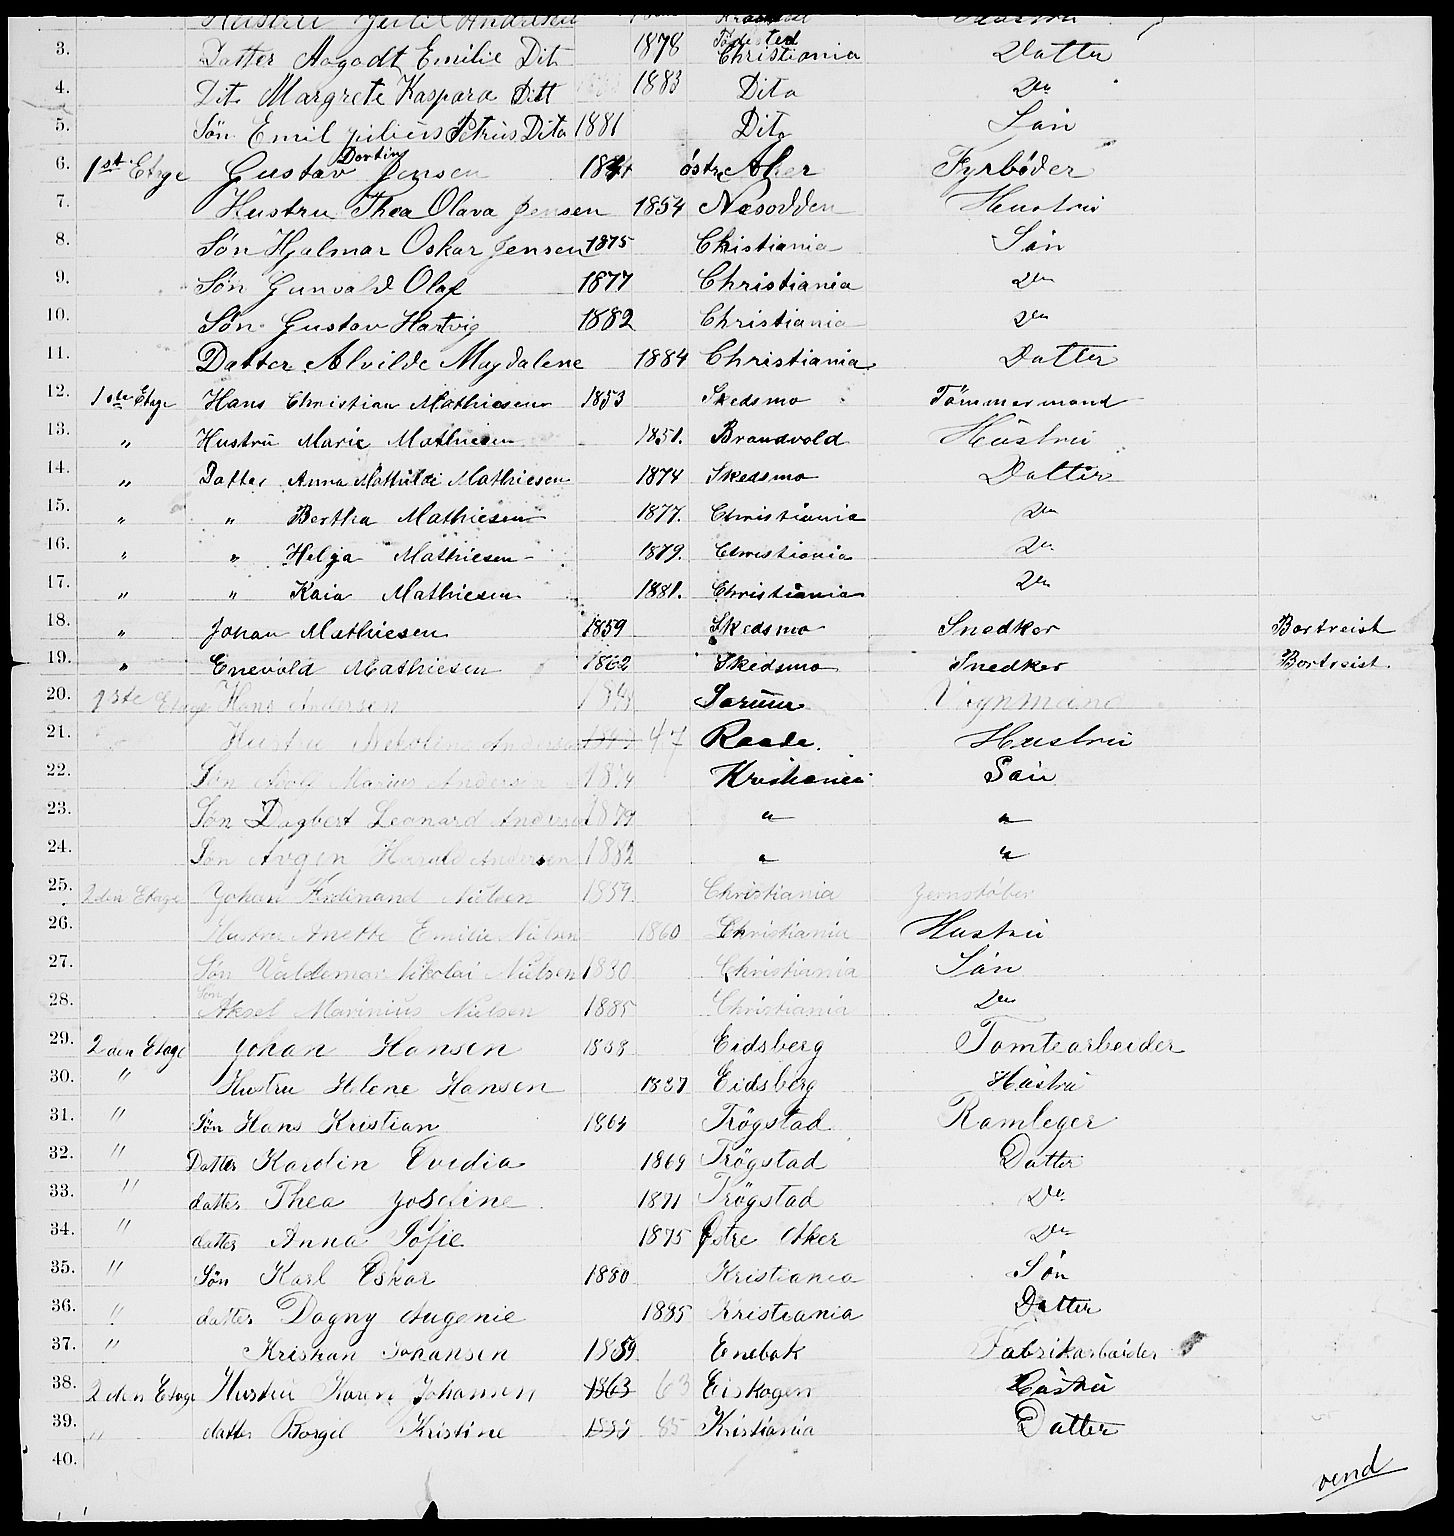 Hustru Julie Andrine
3. Datter Aagodt Emilie Dito 1878 Födested Christiania Datter
4. Dito Margrete Kaspara Ditt 1883 Dito Do
5. Søn Emil Julius Petrus Dito 1881 Dito Sön
6. 1st Etage Gustav Jensen östre Aker Fyrböder
7. Hustru Thea Olava Jensen 1854 Næsodden Hustru
8. Søn Hjalmar Oskar Jensen 1875 Chistiania Sön
9. Søn Gunvald Olaf 1877 Christiania Do
10. Søn Gustav Hartvig 1882 Christiania Do
11. Datter Alvilde Magdalene 1884 Christiania Datter
12. 1ste Etage Hans Christian Mathiesen 1853 Skedsmo Tömmermand
13. " Hustru Marie Mathiesen 1851. Brandvold Hustru
14. " Datter Anna Mathilde Mathiesen 1874 Skedsmo Datter
15. " " Bertha Mathiesen 1877. Christiania Do
16. " " Helga Mathiesen 1879. Christiania Do
17. " " Kaia Mathiesen 1881. Christiania Do
18. " Johan Mathiesen 1859 Skedsmo Snedker Bortreist
19. " Enevold Mathiesen 1862 Skedsmo Snedker Bortreist.
20. 1ste Etage Hans Andersen Sørum Vognmand
21. Hustru Andersen 47 Raade. Hustru
22. Søn Adolf Marius Andersen Kristiania Søn
23. Søn Dagbert Leonard Andersen 1879 " "
24. Søn Avgen Harald Andersen 1882 " "
25. 2den Etage Johan Ferdinand Nielsen 1859. Christiania Jernstøber
26. Hustru Anette Emilie Nielsen 1860 Christiania Hustru
27. Søn Valdemar Nikolai Nielsen 1880 Christiania Sön
28. Søn Aksel Marinius Nielsen 1885 Christiania Do
29. 2den Etage Johan Hansen 1838 Eidsberg Tomtearbeider
30. " Hustru Helene Hansen 1837 Eidsberg Hustru
31. " Søn Hans Kristian 1864 Trögstad Ramleger
32. " Datter Karolin Ovedia 1869 Trögstad Datter
33. " datter Thea Josefine 1871 Trögstad Do
34. " datter Anna Sofie 1875 Østre Aker Do
35. " Søn Karl Oskar 1880 Kristiania Søn
36. " datter Dagny Augenie 1885 Kristiania Datter
37. " Kristian Johansen 1859 Enebak Fabrikarbeider
38. 2den Etage Hustru Karen Johansen 1863 63 Eiskogen Hustru
39. " datter Borgil Kristine 85 Kristiania Datter
40.
vend